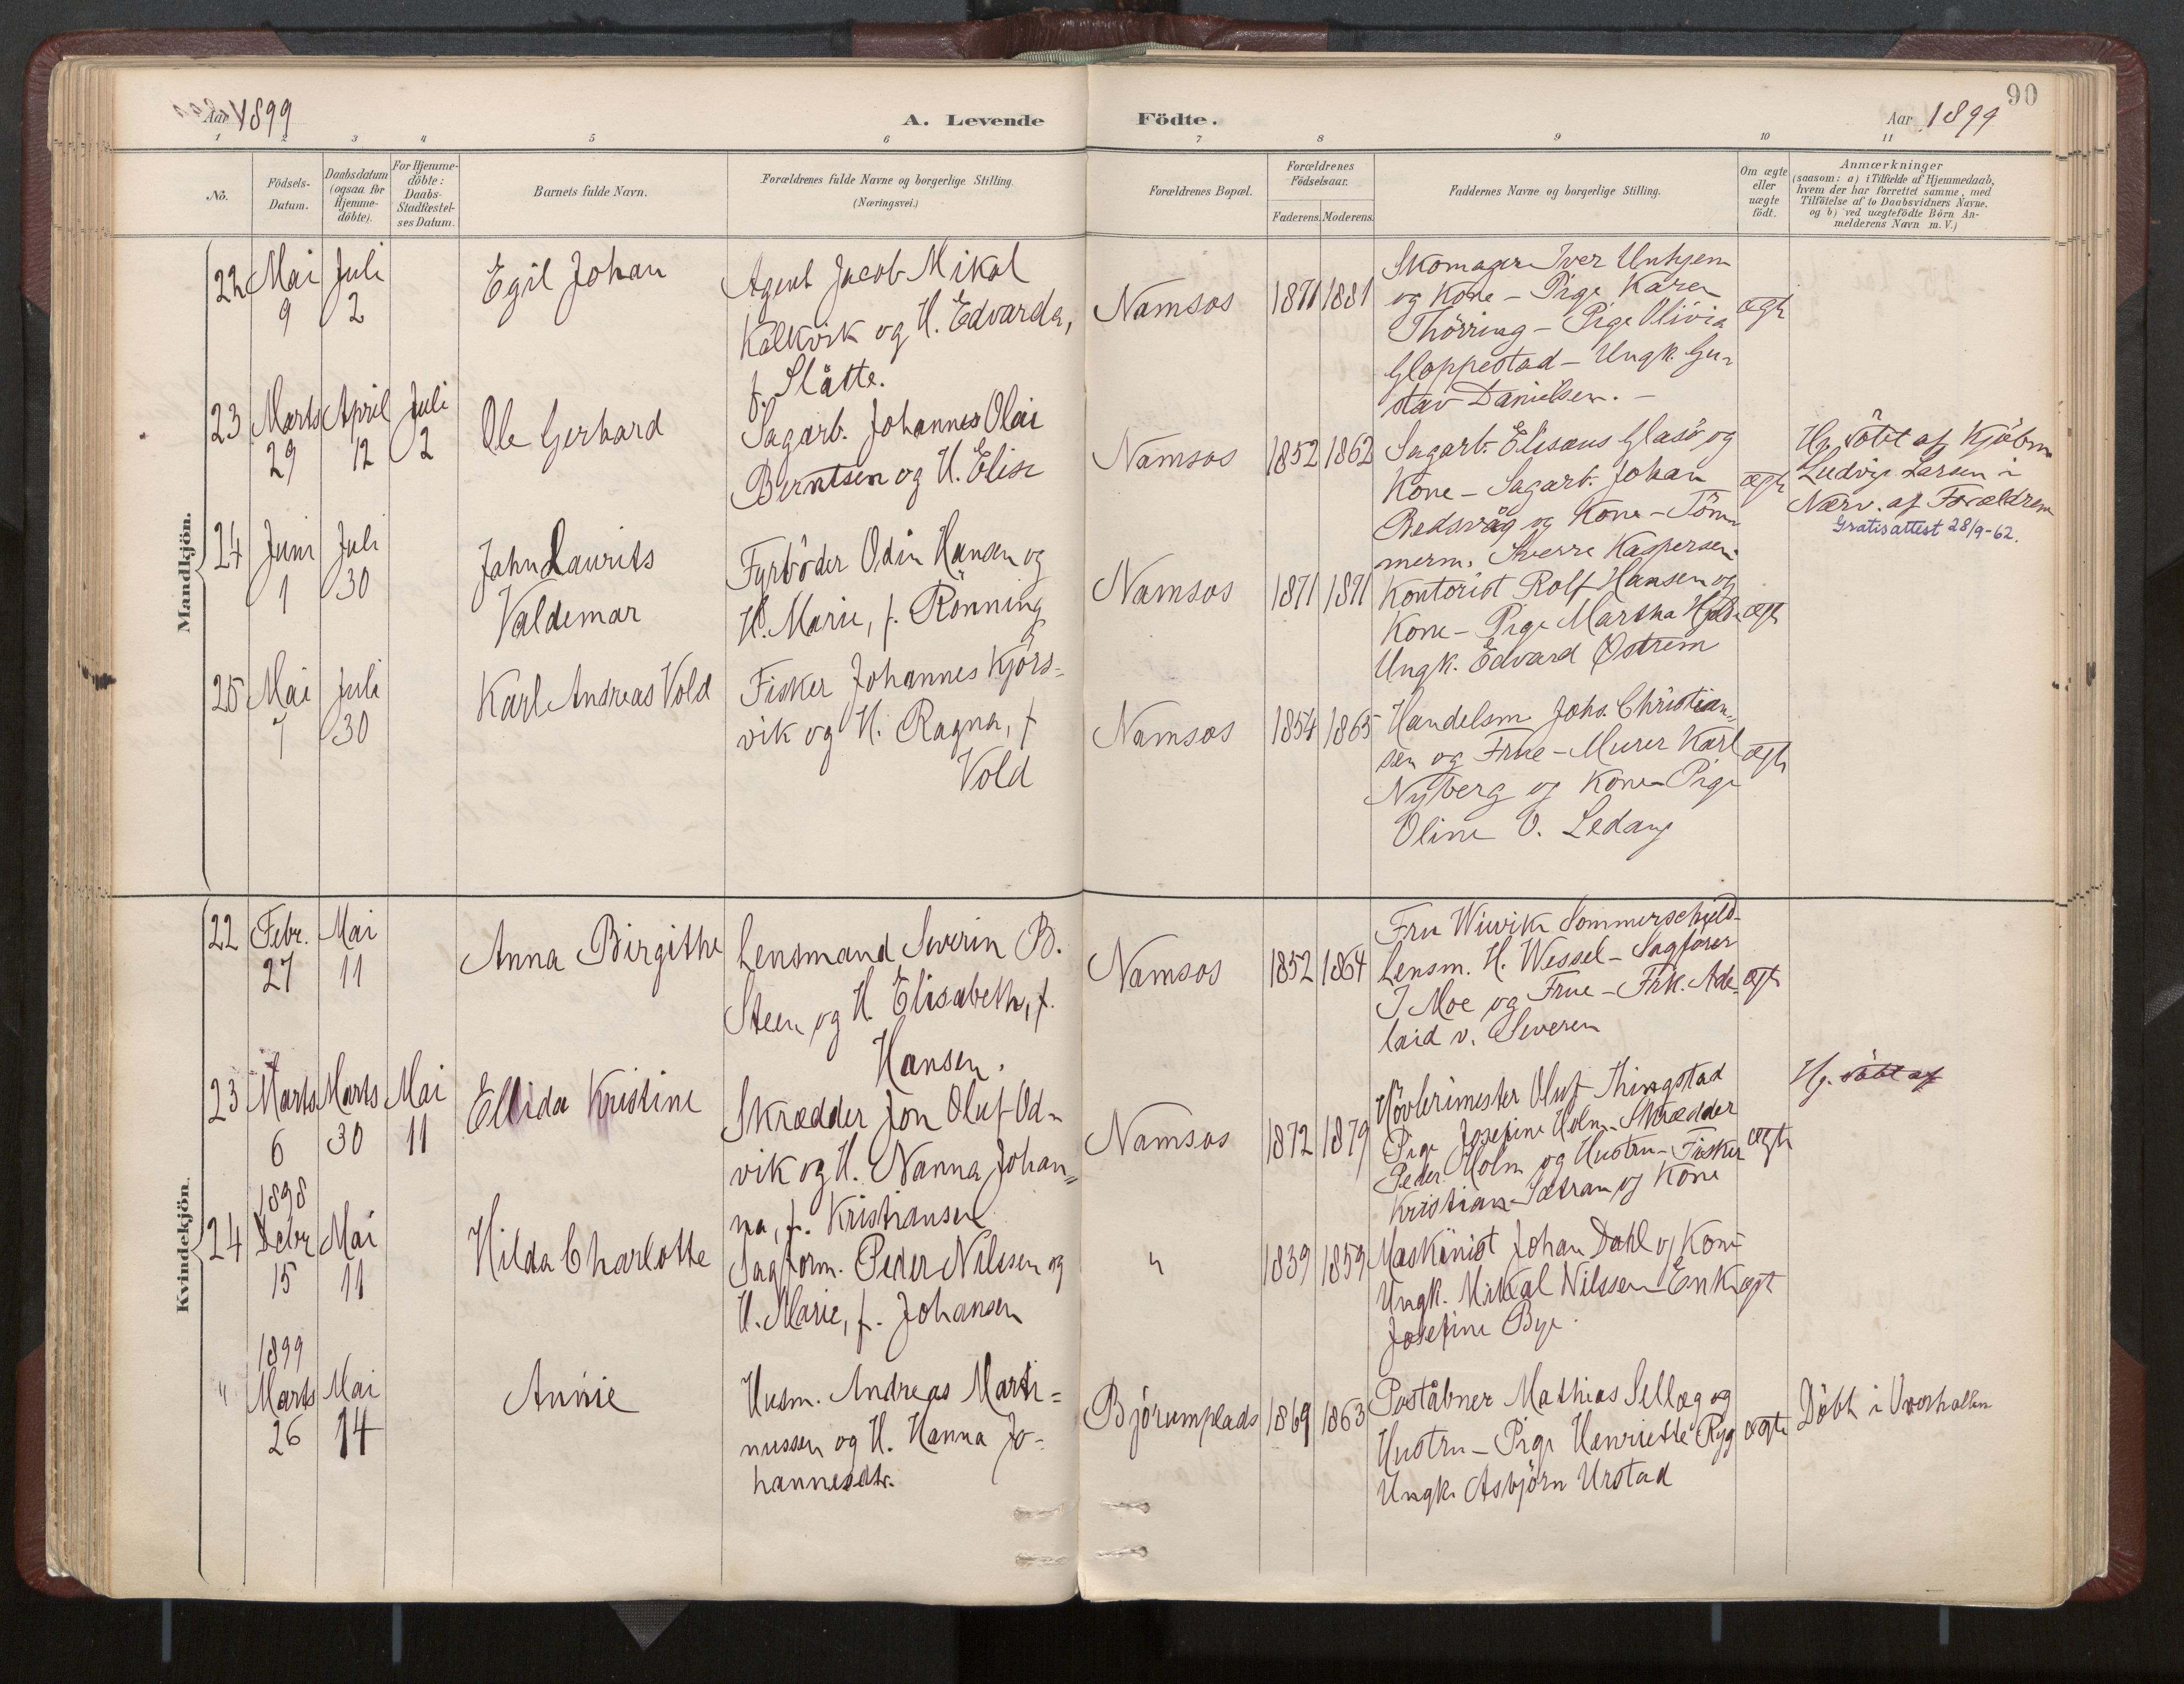 Aar 1899
A. Levende
Födte.
Aar 1899
90
1 2 3 4 5 6 7 8 9 10 11
No.
Födsels-
Datum.
Daabsdatum
(ogsaa for
Hjemme-
döbte).
For Hjemme-
döbte:
Daabs-
Stadfæstel-
ses Datum.
Barnets fulde Navn.
Forældrenes fulde Navne og borgerlige Stilling.
(Næringsvei.)
Forældrenes Bopæl.
Forældrenes
Födselsaar.
Faderens. Moderens.
Faddernes Navne og borgerlige Stilling.
Om ægte
eller
uægte
födt.
Anmærkninger
(saasom: a) i Tilfælde af Hjemmedaab,
hvem der har forrettet samme, med
Tilföielse af to Daabsvidners Navne.
og b) ved uægtefödte Börn An-
melderens Navn m. V.)
Mandkjön.
22
Mai
9
Juli
2
Egil Johan
Agent Jacob Mikal
Kalkvik og H. Edvarda,
f. Slåtte.
Namsos
1871 1881
Skomager Iver Unhjem
og Kone - Pige Karen
Thörring - Pige Olivia
Gloppestad - Ungk. Gu-
stav Danielsen. -
ægte
23
Marts
29
April
12
Juli
2
Ole Gerhard
Sagarb. Johannes Olai
Berntsen og H. Elise
Namsos
1852 1862
Sagarb. Elisæus Glasö og
Kone - Sagarb. Johan
Bedsvåg og Kone - Töm-
merm. Sverre Kaspersen.
ægte
Hj. döbt af Kjöbm
Ludvig Larsen i
Nærv. af Forældrene
Gratisattest 28/9-62.
24
Juni
1
Juli
30
John Laurits
Valdemar
Fyrböder Odin Hansen og
H. Marie, f. Rönning
Namsos
1871 1871
Kontorist Rolf Hansen og
Kone - Pige Martha
Ungk. Edvard Östrem
ægte
25
Mai
7
Juli
30
Karl Andreas Vold
Fisker Johannes Kjörs-
vik og H. Ragna, f
Vold
Namsos
1854 1865
Handelsm Johs. Christian-
sen og Frue - Murer Karl
Nyberg og Kone - Pige
Oline O. Ledang
ægte
Kvindekjön.
22
Febr.
27
Mai
11
Anna Birgithe
Lensmand Severin B.
Steen og H. Elisabeth, f.
Hansen.
Namsos
1852 1864
Fru Wivike Sommerschield-
Lensm. H. Wessel - Sagförer
I Moe og Frue - Frk. Ade-
laid v. Severen
ægte
23
Marts
6
Marts
30
Mai
11
Ellida Kristine
Skrædder Jon Oluf Od-
vik og H. Nanna Johan-
na, f. Kristiansen
Namsos
1872 1879
Hövlerimester Oluf Thingstad
Pige Josefine Holm - Skrædder
Peder Holm og Hustru - Fisker
Kristian Sætran og Kone
ægte
Hj. döbt af
24
1898
Debr
15
Mai
11
Hilda Charlotte
Sagform. Peder Nilssen og
H. Marie, f. Johansen
"
1839 1859
Maskinist Johan Dahl og Kone
Ungk. Mikal Nilssen - Enke
Josefine Bye.
ægte
"
1899
Marts
26
Mai
14
Annie
Husm. Andreas Marti-
nussen og H. Hanna Jo-
hannesdtr.
Björumplads
1869 1863
Poståbner Mathias Sellæg og
Hustru - Pige Henriette Ryg
Ungk. Asbjörn Urstad
ægte
Döbt i Overhallen